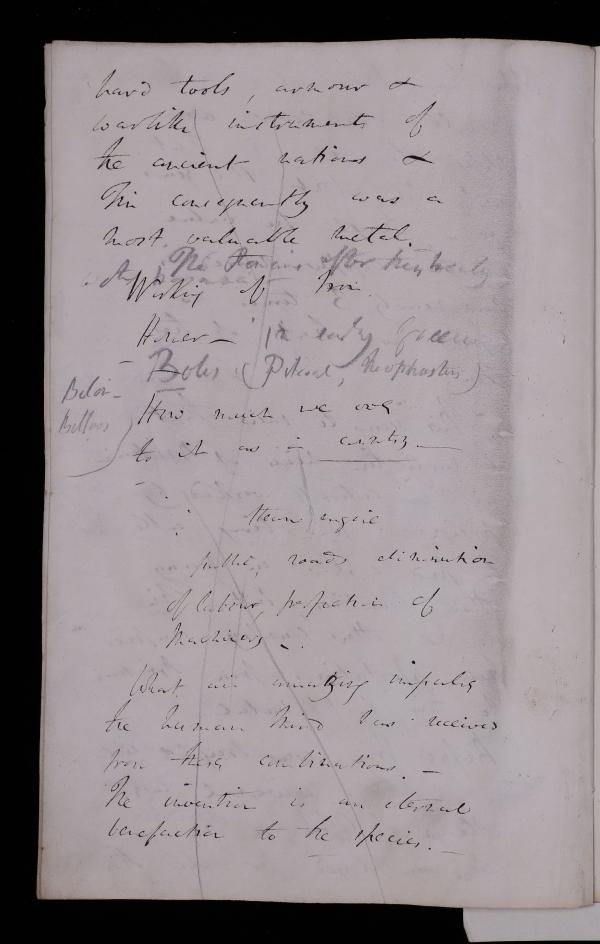 hard tools, armour &
warlike instruments of
the ancient nations &
Tin consequently was a
most valuable metal.
The Romans after
Working of Iron
Homer — in early
Boles (
Theophrastus)
Below
Bellows
How much we owe
to it as a country —
Steam engine
public, roads diminution
of labour, perfection of
Machinery —
What an amazing impulse
the human Mind has received
from these combinations. —
The invention is an eternal
benefaction to the species. —